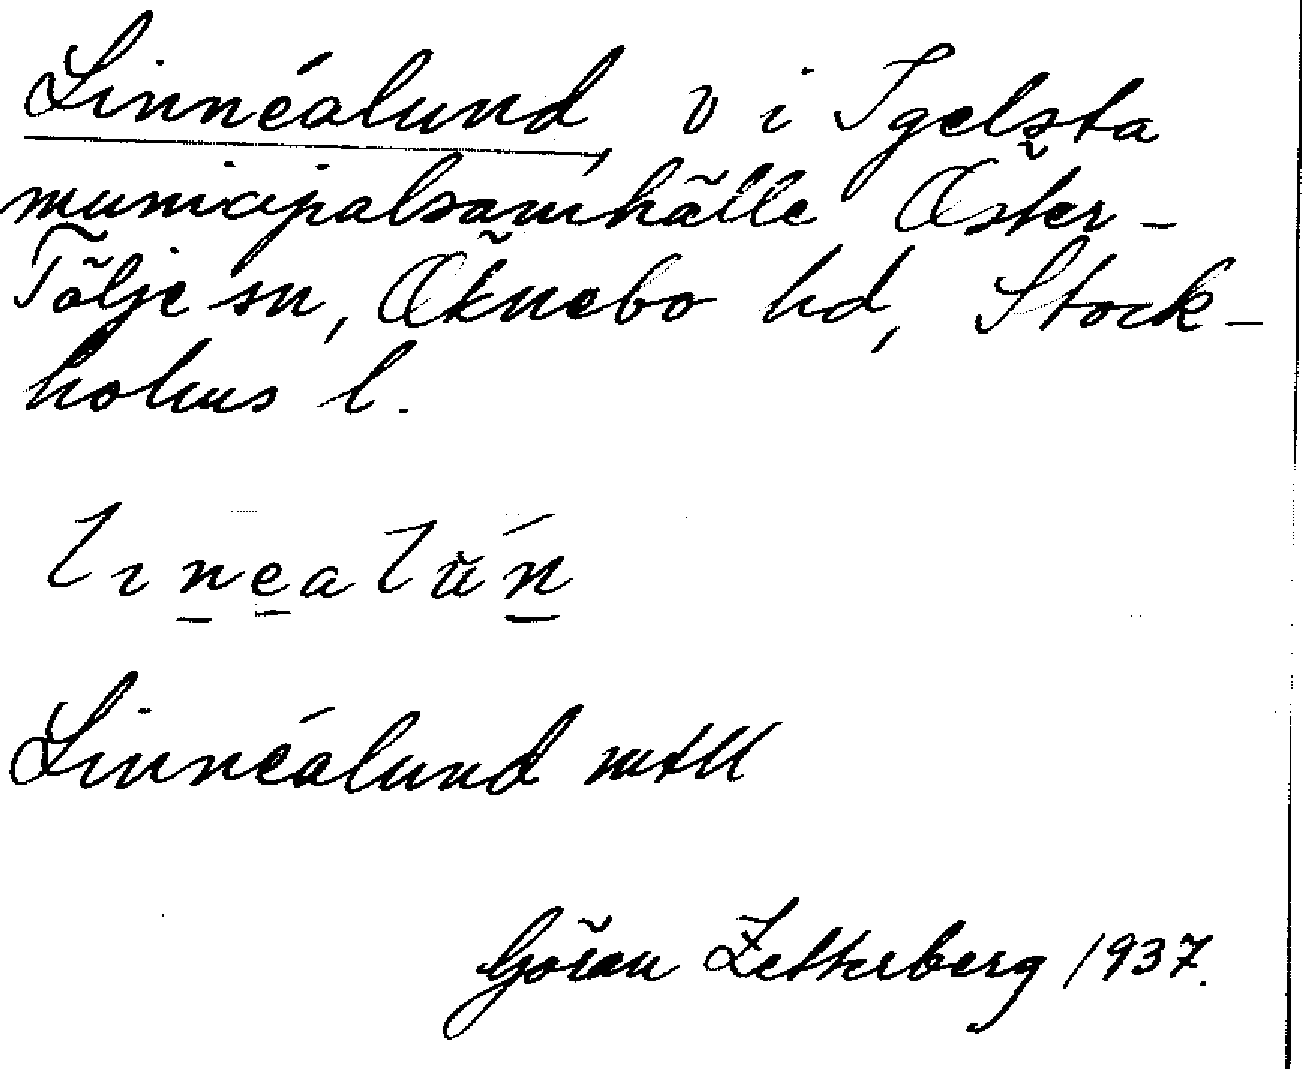 Linnéalund, v i Igelsta
municipalsamhälle Öster-
Tälje sn, Öknebo hd, Stock-
holms l.
lınealu̇́n
Linnéalund mtll
Göran Zetterberg 1937.